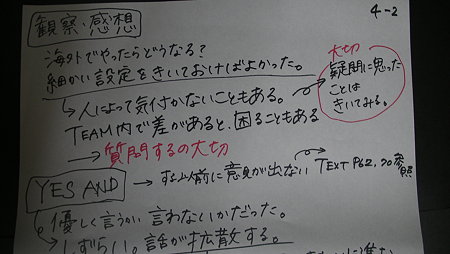 観察・感想
4-2
海外でやったらどうなる?
細かい設定をきいておけばよかった。
大切
疑問に思った
ことは
きいてみる。
↳人によって気付かないこともある。
TEAM内で差があると、困ることもある
→質問するの大切
YES AND → する以前に意見が出ない TEXT P62,70参照
優しく言うかい 言わないかだった。
↳しずらい。話が拡散する。